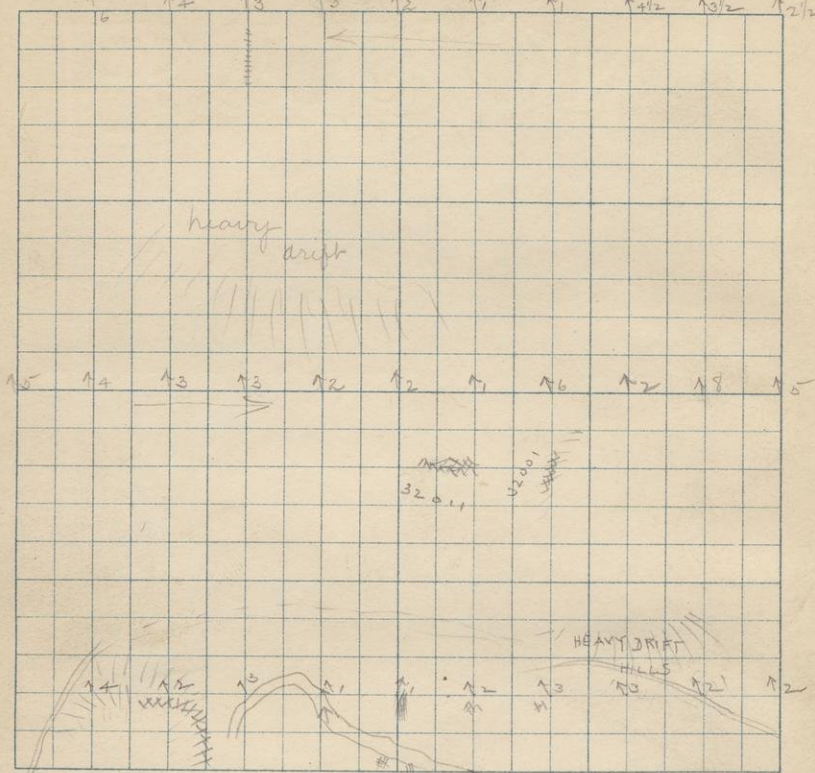 ↑6 ↑4 ↑3 ↑3 ↑2 ↑1 ↑1 ↑4 1/2 ↑3 1/2 ↑2 1/2
heavy
drift
↑5 ↑4 ↑3 ↑3 ↑2 ↑2 ↑1 ↑6 ↑2 ↑8 ↑5
32001
32011
HEAVY DRIFT
HILLS
↑4 ↑2 ↑3 ↑1 ↑1 ↑2 ↑3 ↑3 ↑2 ↑2